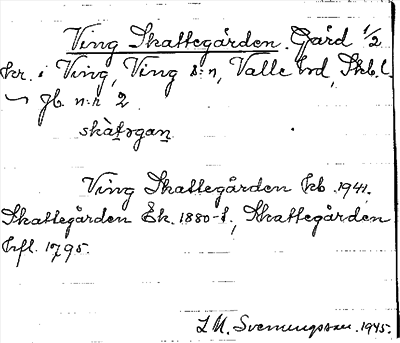 Ving Skattegården. Gård 1/2
kr. i Ving, Ving s:n, Valle hd, Skb. l.
jb. n:r 2
skàt̲organ̲
Ving Skattegården kb. 1941.
Skattegården Ek. 1880-t., Skattegården
hfl. 1795.
1945.